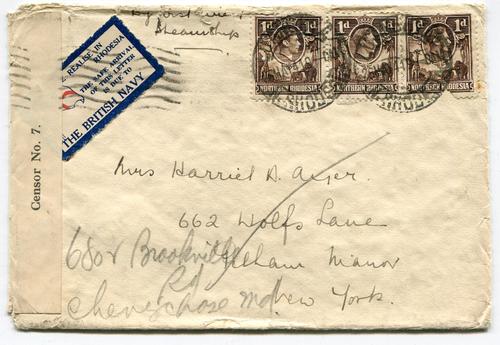 Steamship
WE REALISE IN
RHODESIA
THE SAFE ARRIVAL
OF THIS LETTER
IS DUE TO
THE BRITISH NAVY
1d 1d 1d
NORTHERN RHODESIA NORTHERN RHODESIA NORTHERN RHODESIA
Censor No. 7.
Mrs Harriel A.
662 Wolfs Lane
Pelham Manor
New York.
6808 Brookville
Rd
Chevy Chase Md